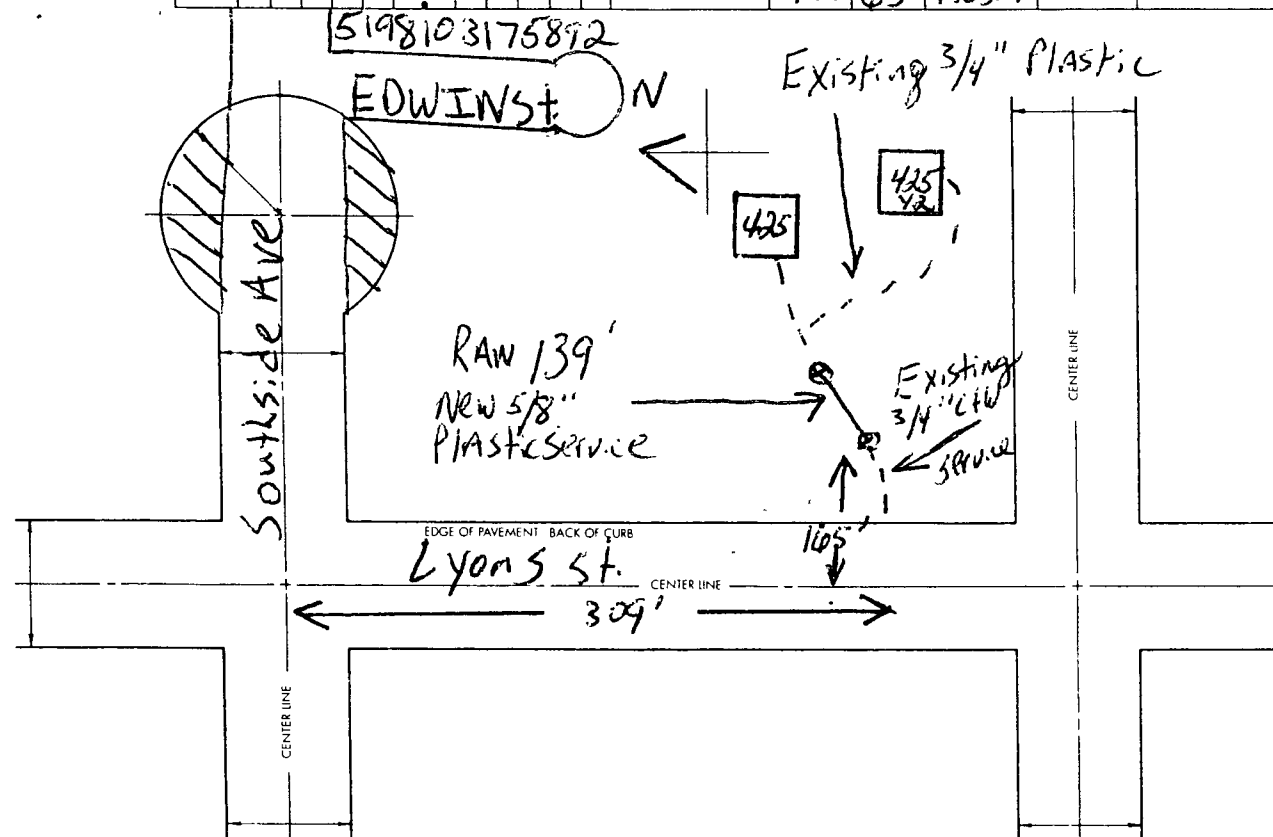 5198103175892
EDWIN St.
N
Existing 3/4" Plastic
425
425
1/2
Southside Ave
RAW 139'
New 5/8"
Plastic Service
Existing
3/4" CTW
Service
EDGE OF PAVEMENT BACK OF CURB
165'
Lyons St.
CENTER LINE
309'
CENTER LINE
CENTER LINE